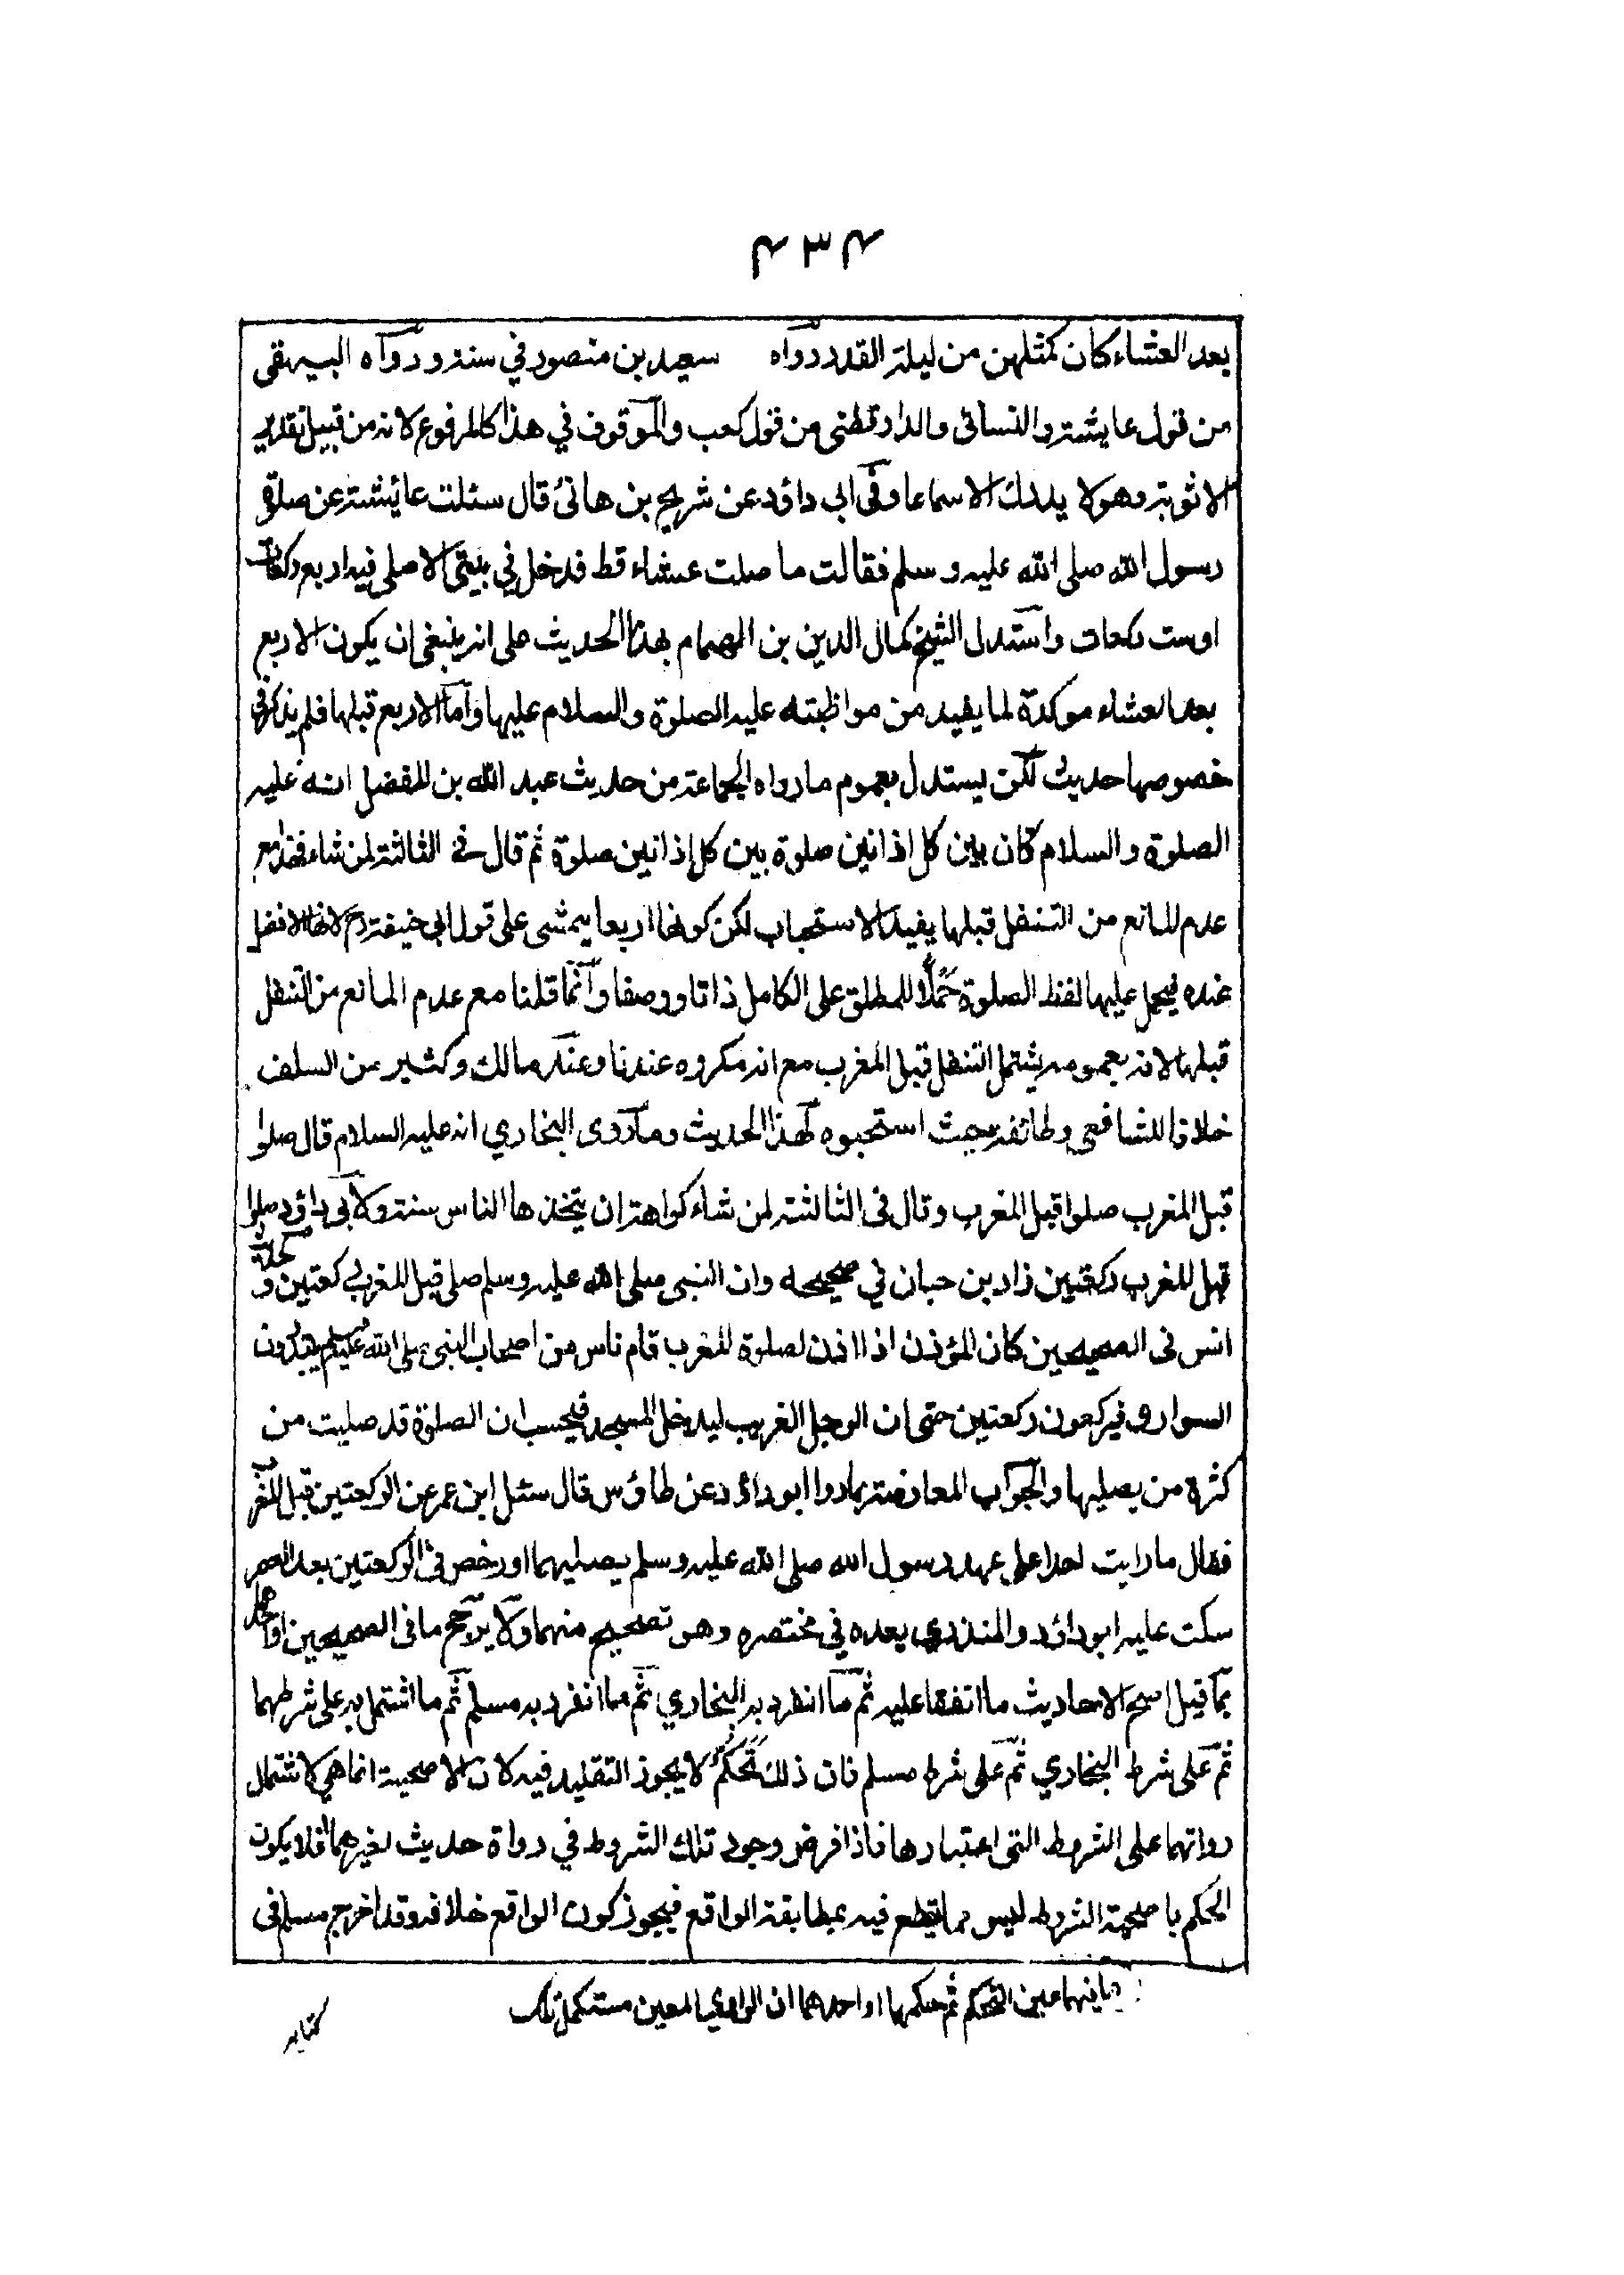 ٤٣٤
بعد العشاء كان كمثلهن من ليلة القدر رواه سعيد بن منصور في سننه ورواه البيهقي
من قول عايشة والنسائى والدارقطنى من قول كعب والموقوف في هذا كالمرفوع لانه من قبيل تقدير
الاثوبة وهو لا يدرك الا سماعا وفى ابى داؤد عن شريح بن هانئ قال سئلت عائشة عن صلوة
رسول الله صلى الله عليه وسلم فقالت ما صلت عشاء قط فدخل في بيتى الا صلى فيه اربع ركعات
اوست ركعات واستدل الشيخ كمال الدين بن الهمام بهذا الحديث على انه ينبغى ان يكون الاربع
بعد العشاء موكدة لما يفيد من مواظبته عليه الصلوة والسلام عليها واما الاربع قبلها فلم يذكر في
خصوصها حديث لكن يستدل بعموم ما رواه الجماعة من حديث عبد الله بن المفضل انه عليه
الصلوة والسلام كان بين كل اذانين صلوة بين كل اذانين صلوة ثم قال في الثالثة لمن شاء فهذا مع
عدم المانع من التنفل قبلها يفيد الاستحباب لكن كونها اربعا يمشى على قول ابى حنيفة رح لانها الافضل
عنده فيحمل عليها لفظ الصلوة حملا للمطلق على الكامل ذاتا ووصفا وانما قلنا مع عدم المانع من التنفل
قبلها لانه بعمومه يشتمل التنفل قبل المغرب مع انه مكروه عندنا وعند مالك وكثير من السلف
خلافا للشافعى وطائفة حيث استحبوه لهذا الحديث وما روى البخاري انه عليه السلام قال صلوا
قبل المغرب صلوا قبل المغرب وقال فى الثالثة لمن شاء كراهة ان يتخذها الناس سنة ولابى داؤد صلوا
قبل المغرب ركعتين زاد بن حبان في صحيحه وان النبى صلى الله عليه وسلم صلى قبل المغرب ركعتين و لحديث
انس فى الصحيحين كان المؤذن اذا اذن لصلوة المغرب قام ناس من اصحاب النبى صلى الله عليه وسلم يبتدرون
السوارى فيركعون ركعتين حتى ان الرجل الغريب ليدخل المسجد فيحسب ان الصلوة قد صليت من
كثرة من يصليها والجواب المعارضة بما روا ابو داؤد عن طاؤس قال سئل ابن عمر عن الركعتين قبل المغرب
فقال ما رايت احدا على عهد رسول الله صلى الله عليه وسلم يصليهما او رخص في الركعتين بعد العصر
سكت عليه ابو داؤد والمنذري بعده في مختصره وهو تصحيح منهما ولا يرجح ما فى الصحيحين او احدهما
بما قيل اصح الاحاديث ما اتفقا عليه ثم ما انفرد به البخاري ثم ما انفرد به مسلم ثم ما اشتمل به على شرطهما
ثم على شرط البخاري ثم على شرط مسلم فان ذلك تحكم لا يجوز التقليد فيه لان الاصحية انما هى لاشتمال
رواتهما على الشروط التى اعتبارها فاذا فرض وجود تلك الشروط في رواة حديث لغيرهما افلا يكون
الحكم باصحية الشروط ليس مما يقطع فيه بمطابقة الواقع فيجوز كون الواقع خلافه وقد اخرج مسلم فى
ما فيهما عين التحكم ثم حكمهما او احدهما ان الراوي المعين مستكمل تلك
كتابه